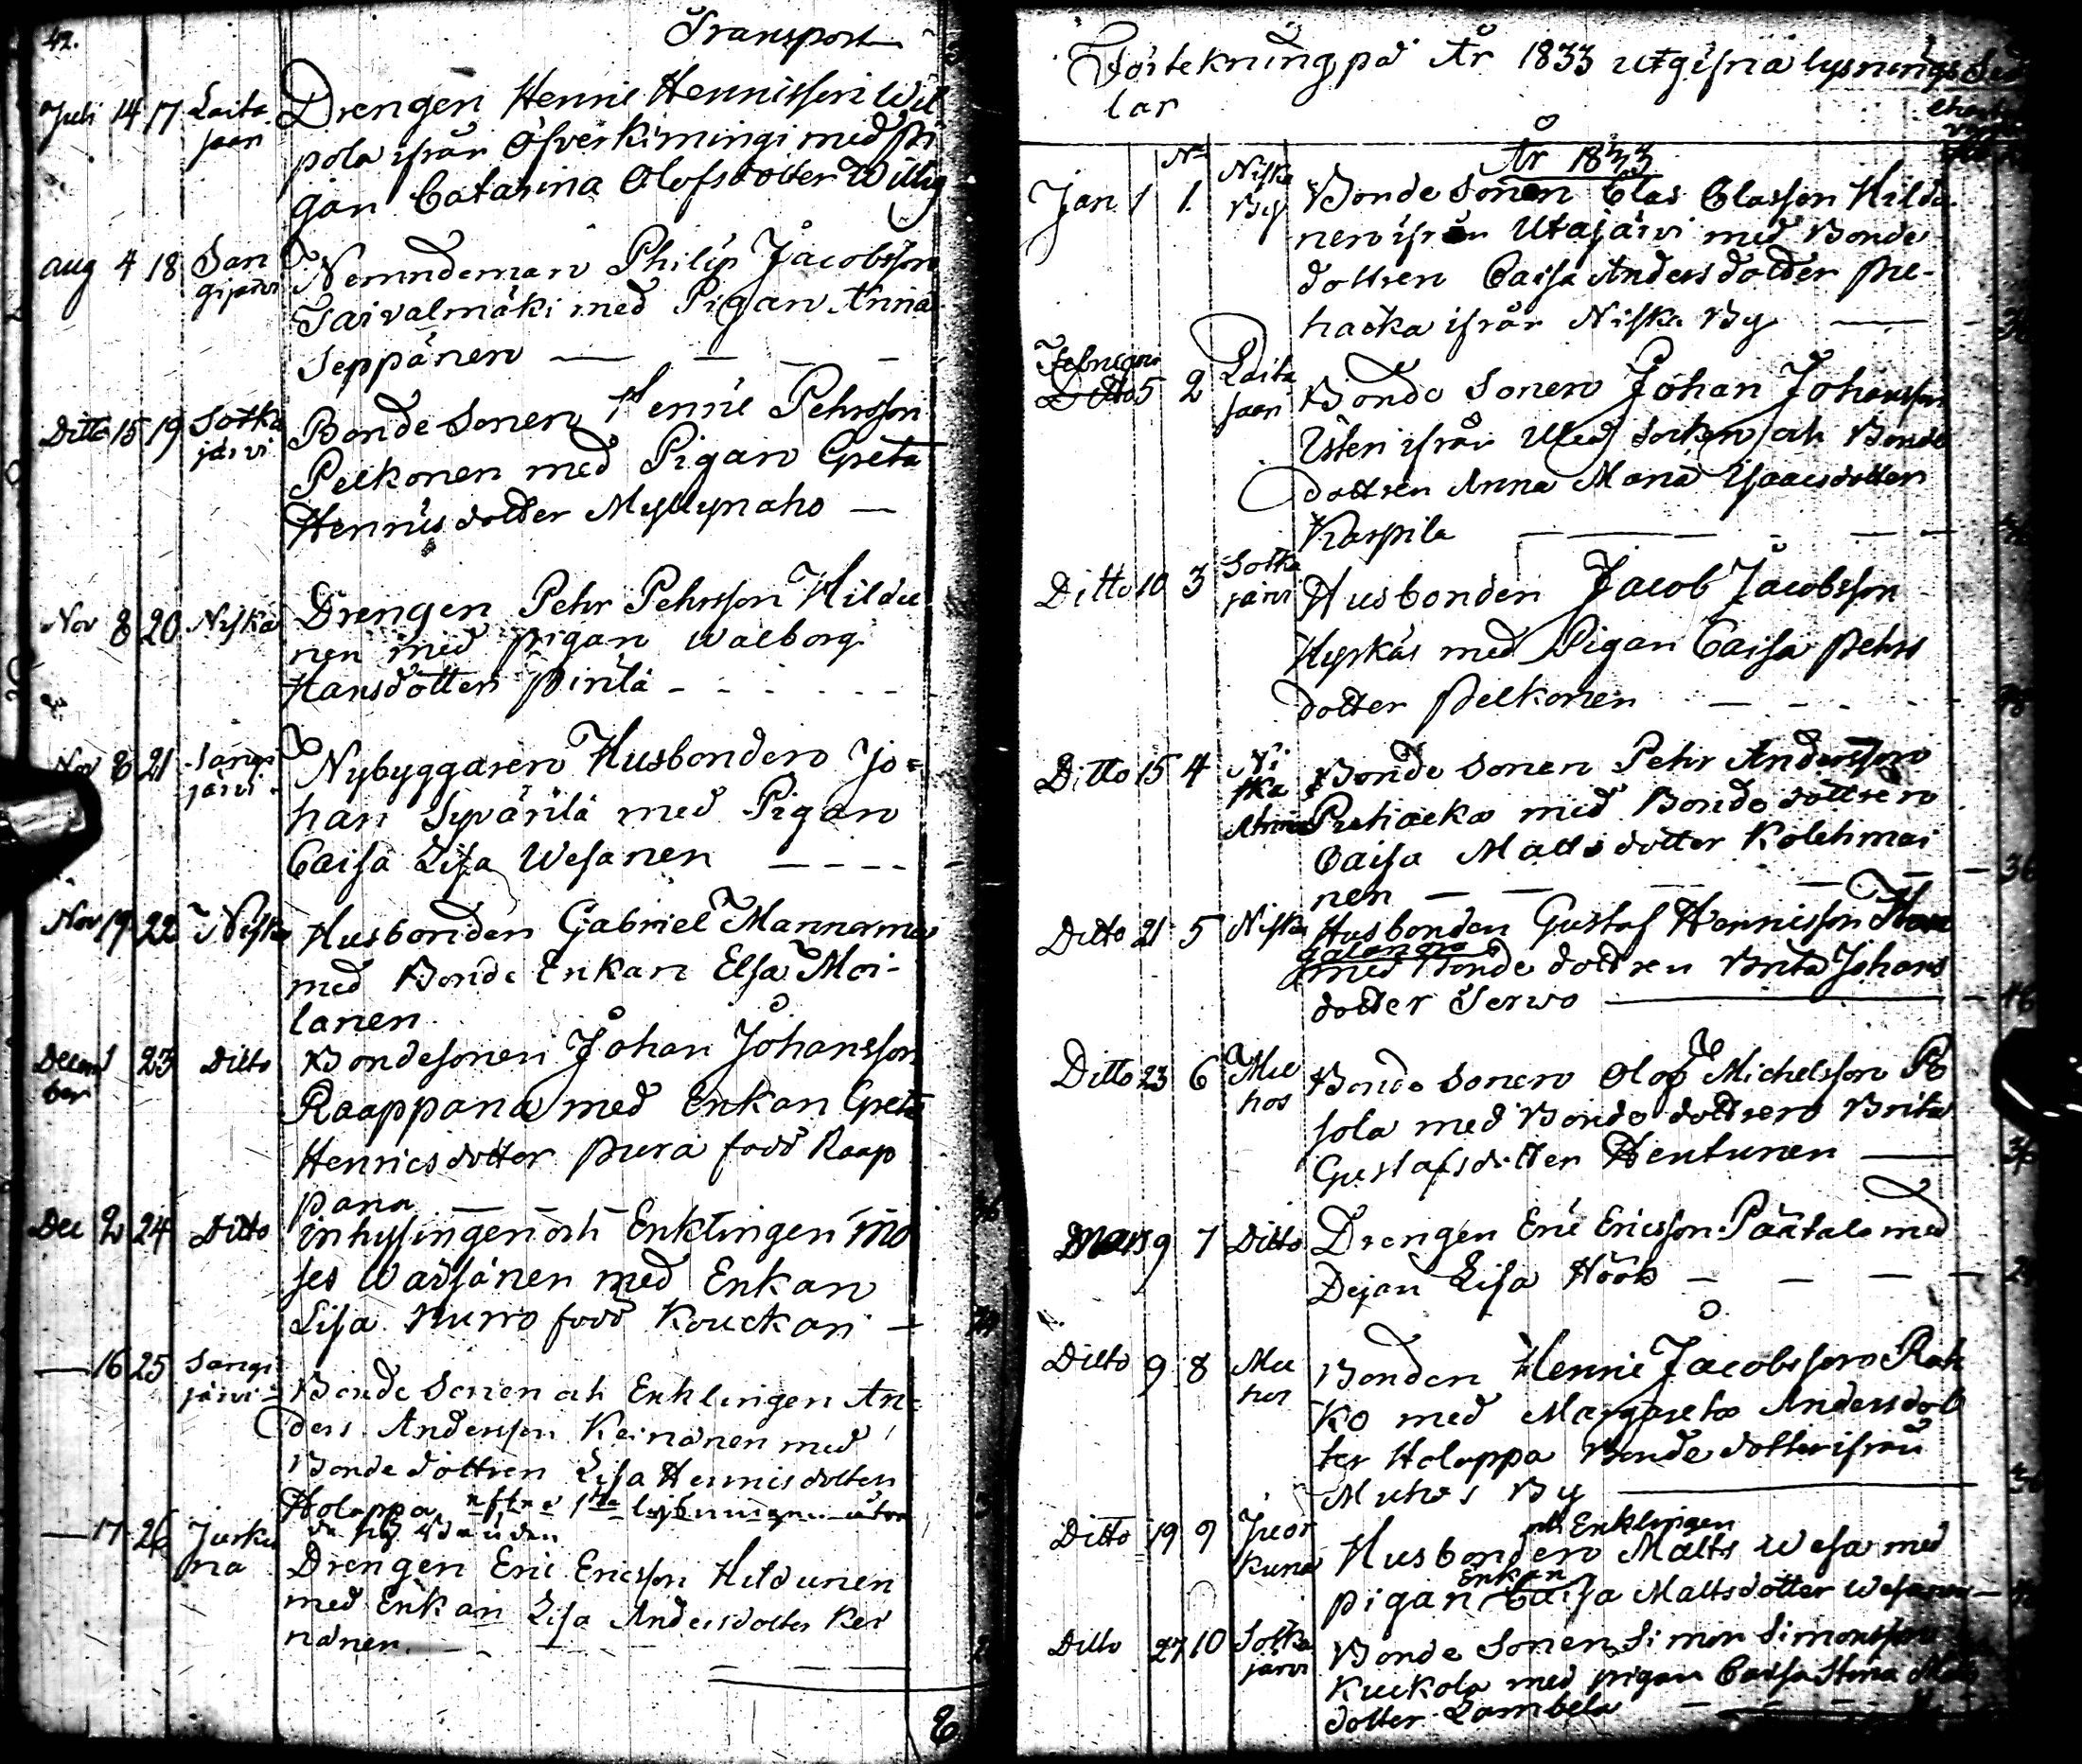 42.
Transport
Juli 14 17 Laita Drengen Henric Henricsson Wil
jaan pola ifrån Öfverkimingi med Pi
gan Catarina Olofsdotter Willig
Aug 4 18 San Nemndeman Philip Jacobsson
gijärvi Taivalmäki med Pigan Anna
Seppänen
Ditto 15 19 Sotka Bonde Sonen Henric Pehrsson
järvi Pelkonen med Pigan Greta
Henricsdotter Myllynaho
Nov 8 20 Niska Drengen Pehr Pehrsson Hildu
nen med pigan Walborg
Hansdotter Pirilä
Nov 8 21 Sangi Nybyggaren Husbonden Jo=
järvi han Syvärilä med Pigan
Caisa Lisa Wesanen
Nov 19 22 Niska Husbonden Gabriel Mannermaa
med Bonde Enkan Elsa Moi-
lanen
Decem 1 23 Ditto Bondesonen Johan Johansson
ber Raappana med Enkan Greta
Henricsdotter Pura född Raap
pana
Dec 2 24 Ditto Inhysingen och Enklingen Mo
ses Waisänen med Enkan
Lisa Nurro född Kouckari
— 16 25 Sangi Bonde Sonen och Enklingen An=
järvi ders Andersson Keinänen med
Bonde dottren Lisa Henricsdotter
Holappa efter 1sta lysningen
Drengen Eric Ericsson Hildunen
— 17 26 Jurku
na med Enkan Lisa Andersdotter Kei
nänen
Förtekning på År 1833 utgifna lysnings Sed
lar
No År 1833
Jan 1 1. Niska Bonde Sonen Clas Classon Hildu
By nen ifrån Utajärvi med Bonde
dottren Caisa Andersdotter Pre-
hacka ifrån Niska By
Februari 5 2 Laita Bonde Sonen Johan Johansson
jaan Isteri ifrån Uleå Socken och Bonde
dottren Anna Maria Isaacsdotter
Karpila
Ditto 10 3 Sotka Husbonden Jacob Jacobsson
järvi Hyrkäs med Pigan Caisa Pehrs
dotter Pelkonen
Ditto 15 4 Ni Bonde Sonen Pehr Andersson
ska Prehacka med Bonde dottren
Caisa Mattsdotter Kolehmai
nen
Ditto 21 5 Niska Husbonden Gustaf Henricsson
med Bonde dottren Brita Johans
dotter Serwo
Ditto 23 6 Mu Bonde Sonen Olof Michelsson Po
hos sola med Bonde dottren Brita
Gustafsdotter Hentunen
Mars 9 7 Ditto Drengen Eric Ericsson Päätalo med
Dejan Lisa Höök
Ditto 9 8 Mu Bonden Henric Jacobsson Rah
hos ko med Margareta Andersdot
ter Holappa Bonde dotter ifrån
Muhos By
Ditto 19 9 Juor och Enklingen
kuna Husbonden Matts Wesa med
Enkan
pigan Caisa Mattsdotter Wesanen
Ditto 27 10 Sotka Bonde Sonen Simon Simonsson
järvi Kuckola med pigan Caisa Stina
dotter Lambela